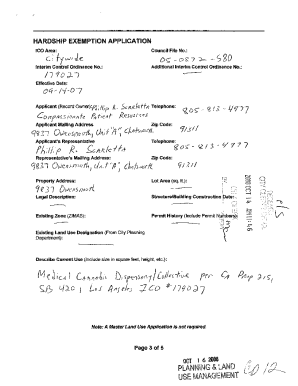 HARDSHIP EXEMPTION APPLICATION
ICO Area: Council File No.:
Citywide 05-0872-S80
Interim Control Ordinance No.: Additional Interim Control Ordinance No.:
179027
Effective Date:
09-14-07
Applicant (Record Owner) Phillip R. Scarletta Telephone:
Compassionate Patient Resources 805-813-4977
Applicant Mailing Address Zip Code:
9837 Owensmouth, Unit "A", Chatsworth 91311
Applicant's Representative Telephone:
Phillip R. Scarletta 805-813-4977
Representative's Mailing Address: Zip Code:
9837 Owensmouth, Unit "A", Chatsworth 91311
Property Address: Lot Area (sq. ft.):
9837 Owensmouth
Legal Description: Structure/Building Construction Date:
Existing Zone (ZIMAS): Permit History (Include Permit Numbers):
Existing Land Use Designation (From City Planning
Department):
Describe Current Use (Include size in square feet, height, etc.):
Medical Cannabis Dispensary/Collective per CA Prop 215,
SB 420, Los Angeles ICO #179027
Note: A Master Land Use Application is not required
Page 3 of 5
OCT 16 2008
PLANNING & LAND
USE MANAGEMENT